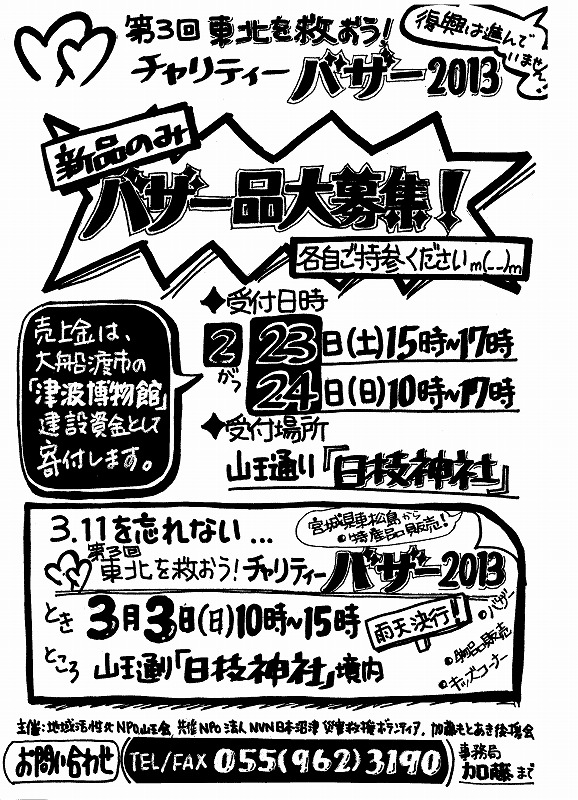 第3回 東北を救おう!
チャリティー バザー2013
復興は進んで
いません
新品のみ
バザー品大募集!
各自ご持参くださいm(__)m
売上金は、
大船渡市の
「津波博物館」
建設資金として
寄付します。
◆受付日時
2がつ 23日(土)15時~17時
24日(日)10時~17時
◆受付場所
山王通り『日枝神社』
3.11を忘れない…
宮城県東松島から
•特産品販売!
第3回
東北を救おう!チャリティーバザー2013
とき 3月3日(日)10時~15時
雨天決行!!
ところ 山王通り「日枝神社」境内
•バザー
•物品販売
•キッズコーナー
主催:地域活性化NPO山王会 共催NPO法人NVN日本沼津災害救援ボランティア. 加藤もとあき後援会
お問い合わせ TEL/FAX 055(962)3190 事務局
加藤まで